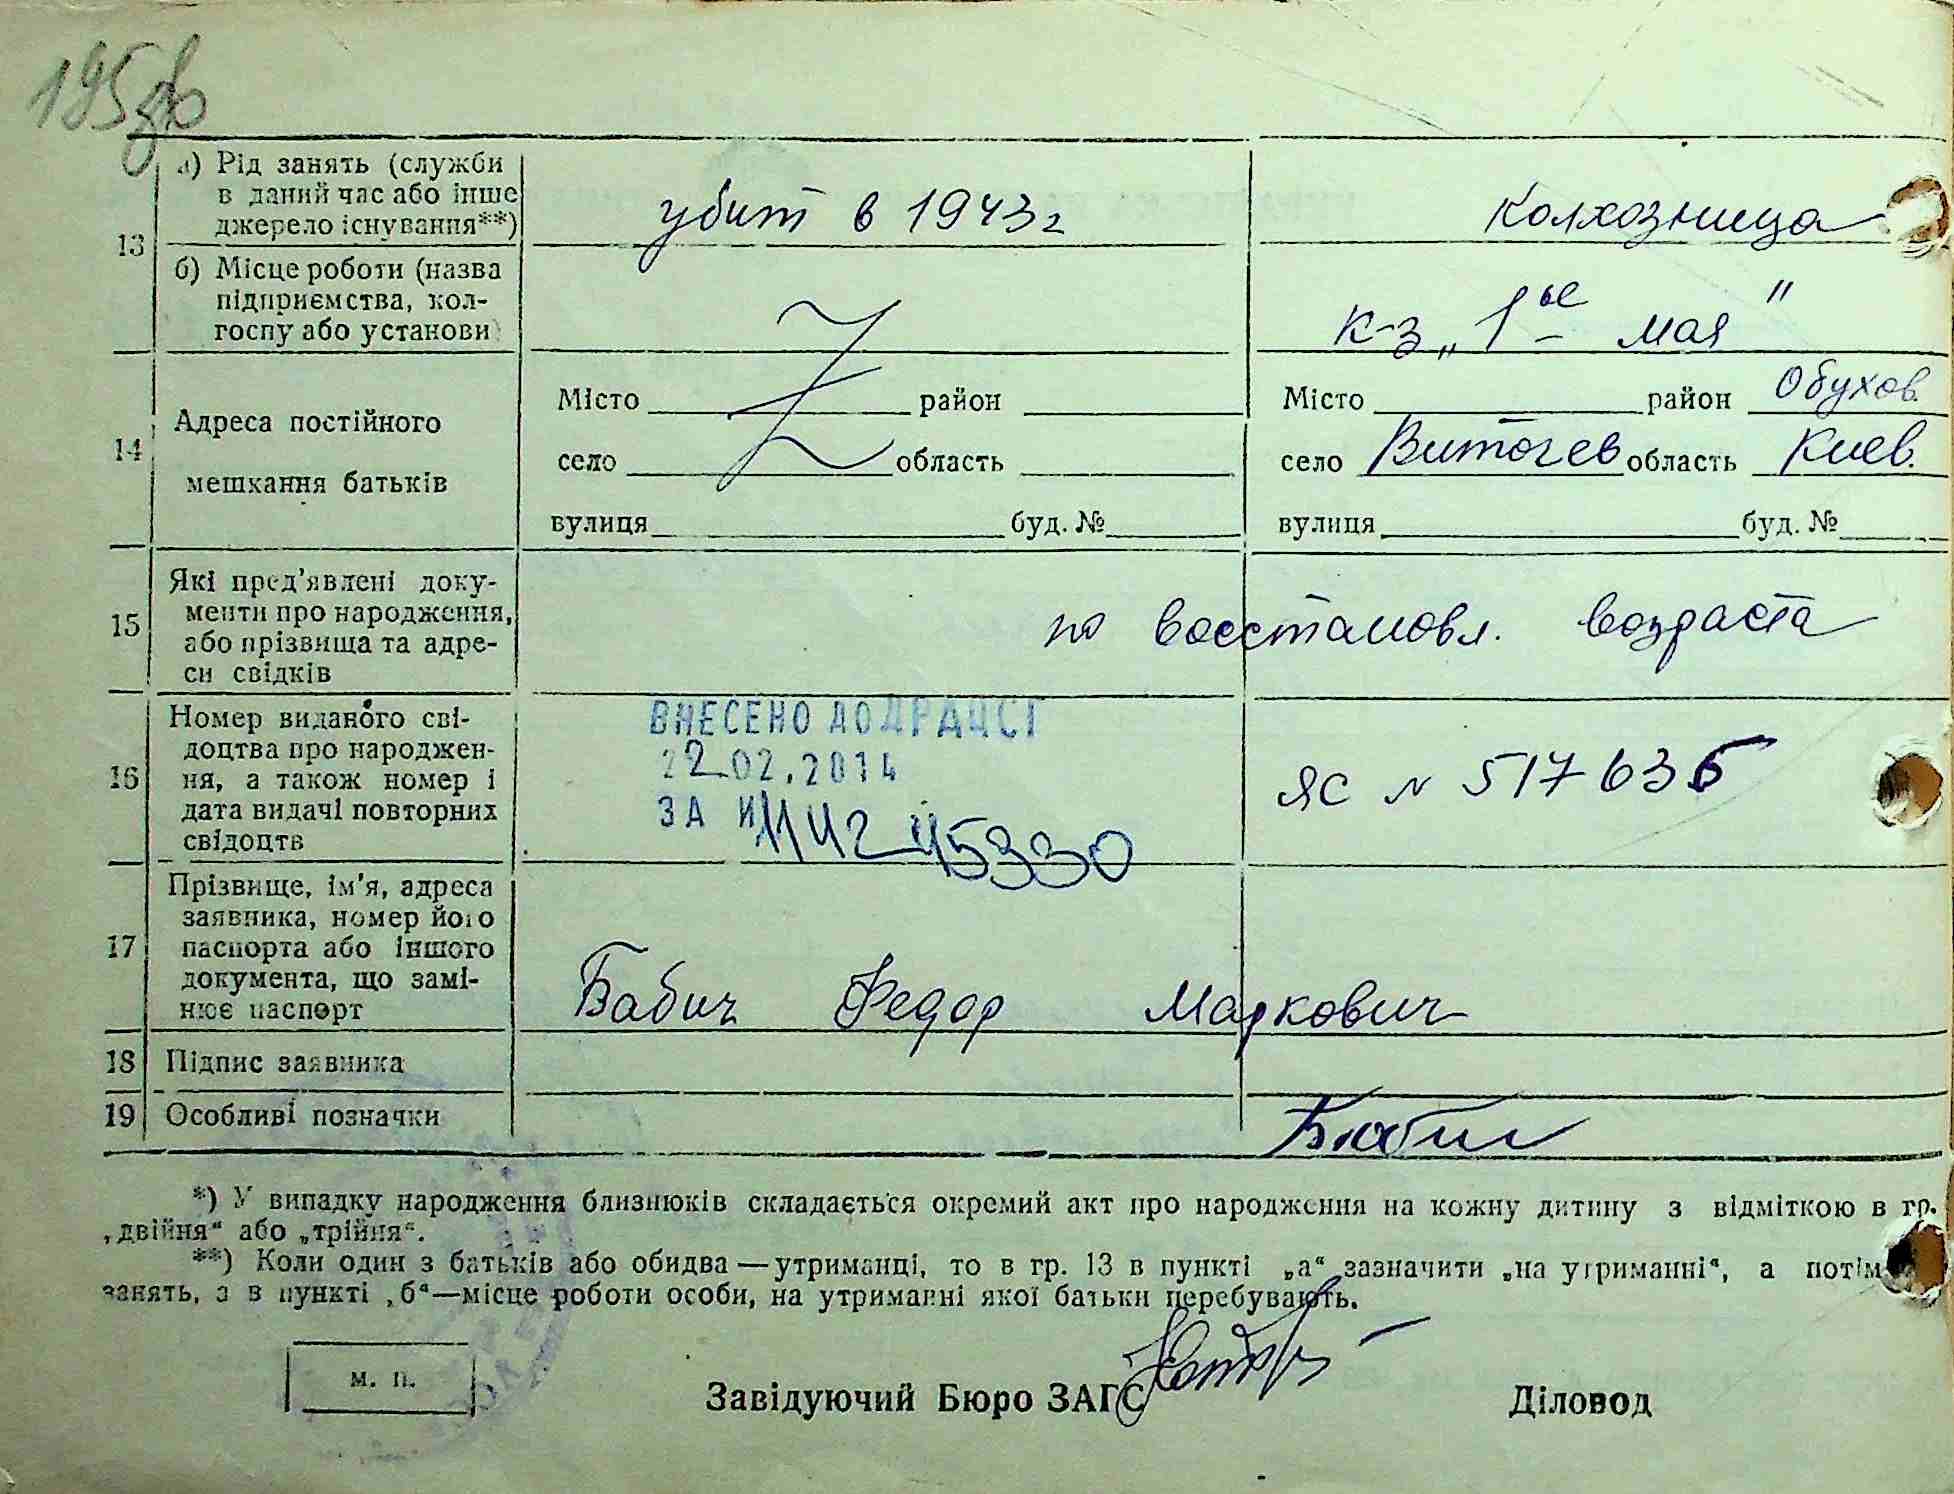 195 зв
13
а) Рід занять (служби
в даний час або інше
джерело існування**)
убит в 1943 г
колхозница
б) Місце роботи (назва
підприємства, кол-
госпу або установи)
к-з „1ое мая"
14
Адреса постійного
мешкання батьків
Місто район
село область
вулиця буд. №
Місто район Обухов.
село Витачев область Киев.
вулиця буд. №
15
Які пред'явлені доку-
менти про народження,
або прізвища та адре-
си свідків
по восстановл. возраста
16
Номер виданого сві-
доцтва про народжен-
ня, а також номер і
дата видачі повторних
свідоцтв
ВНЕСЕНО ДО ДРАЦСГ
22.02.2014
ЗА №
ЯС № 517635
17
Прізвище, ім'я, адреса
заявника, номер його
паспорта або іншого
документа, що замі-
нює паспорт
Бабич Федор Маркович
18 Підпис заявника
19 Особливі позначки
Бабич
*) У випадку народження близнюків складається окремий акт про народження на кожну дитину з відміткою в гр.
„двійня“ або „трійня“.
**) Коли один з батьків або обидва — утриманці, то в гр. 13 в пункті „а“ зазначити „на утриманні“, а потім
занять, а в пункті „б“—місце роботи особи, на утриманні якої батьки перебувають.
м. п.
Завідуючий Бюро ЗАГС
Діловод